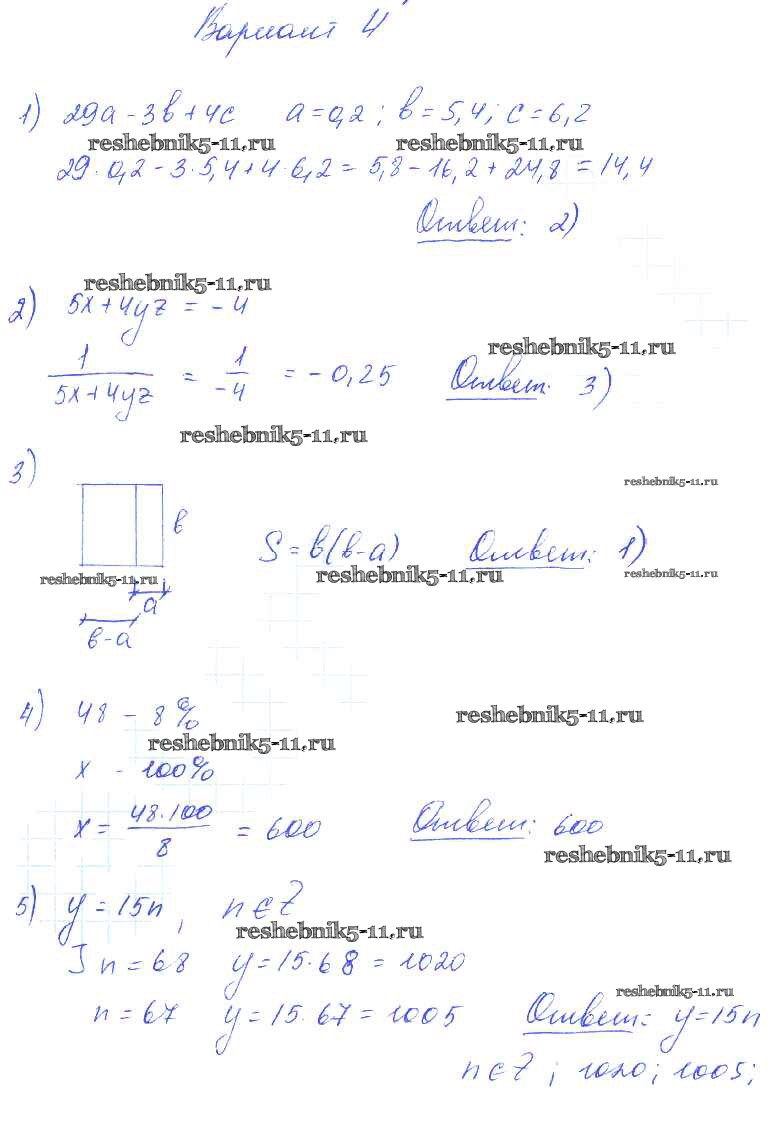 Вариант 4
1) 29a - 3b + 4c a = 0,2; b = 5,4; c = 6,2
reshebnik5-11.ru reshebnik5-11.ru
29·0,2 - 3·5,4 + 4·6,2 = 5,8 - 16,2 + 24,8 = 14,4
Ответ: 2)
reshebnik5-11.ru
2) 5x + 4yz = -4
reshebnik5-11.ru
1/(5x + 4yz) = 1/-4 = -0,25 Ответ: 3)
reshebnik5-11.ru
3)
reshebnik5-11.ru
b
S = b(b-a) Ответ: 1)
reshebnik5-11.ru reshebnik5-11.ru reshebnik5-11.ru
a
b-a
4) 48 - 8%
reshebnik5-11.ru
reshebnik5-11.ru
x - 100%
x = 48·100/8 = 600 Ответ: 600
reshebnik5-11.ru
5) y = 15n, n∈Z
reshebnik5-11.ru
] n = 68 y = 15·68 = 1020
reshebnik5-11.ru
n = 67 y = 15·67 = 1005 Ответ: y = 15n
n∈Z; 1020; 1005;